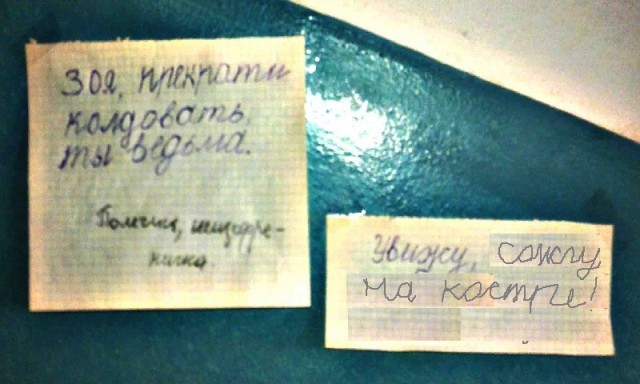 Зоя, прекрати
колдовать,
ты ведьма.
Полечись, шизофре-
ничка.
Увижу, сожгу
на костре!